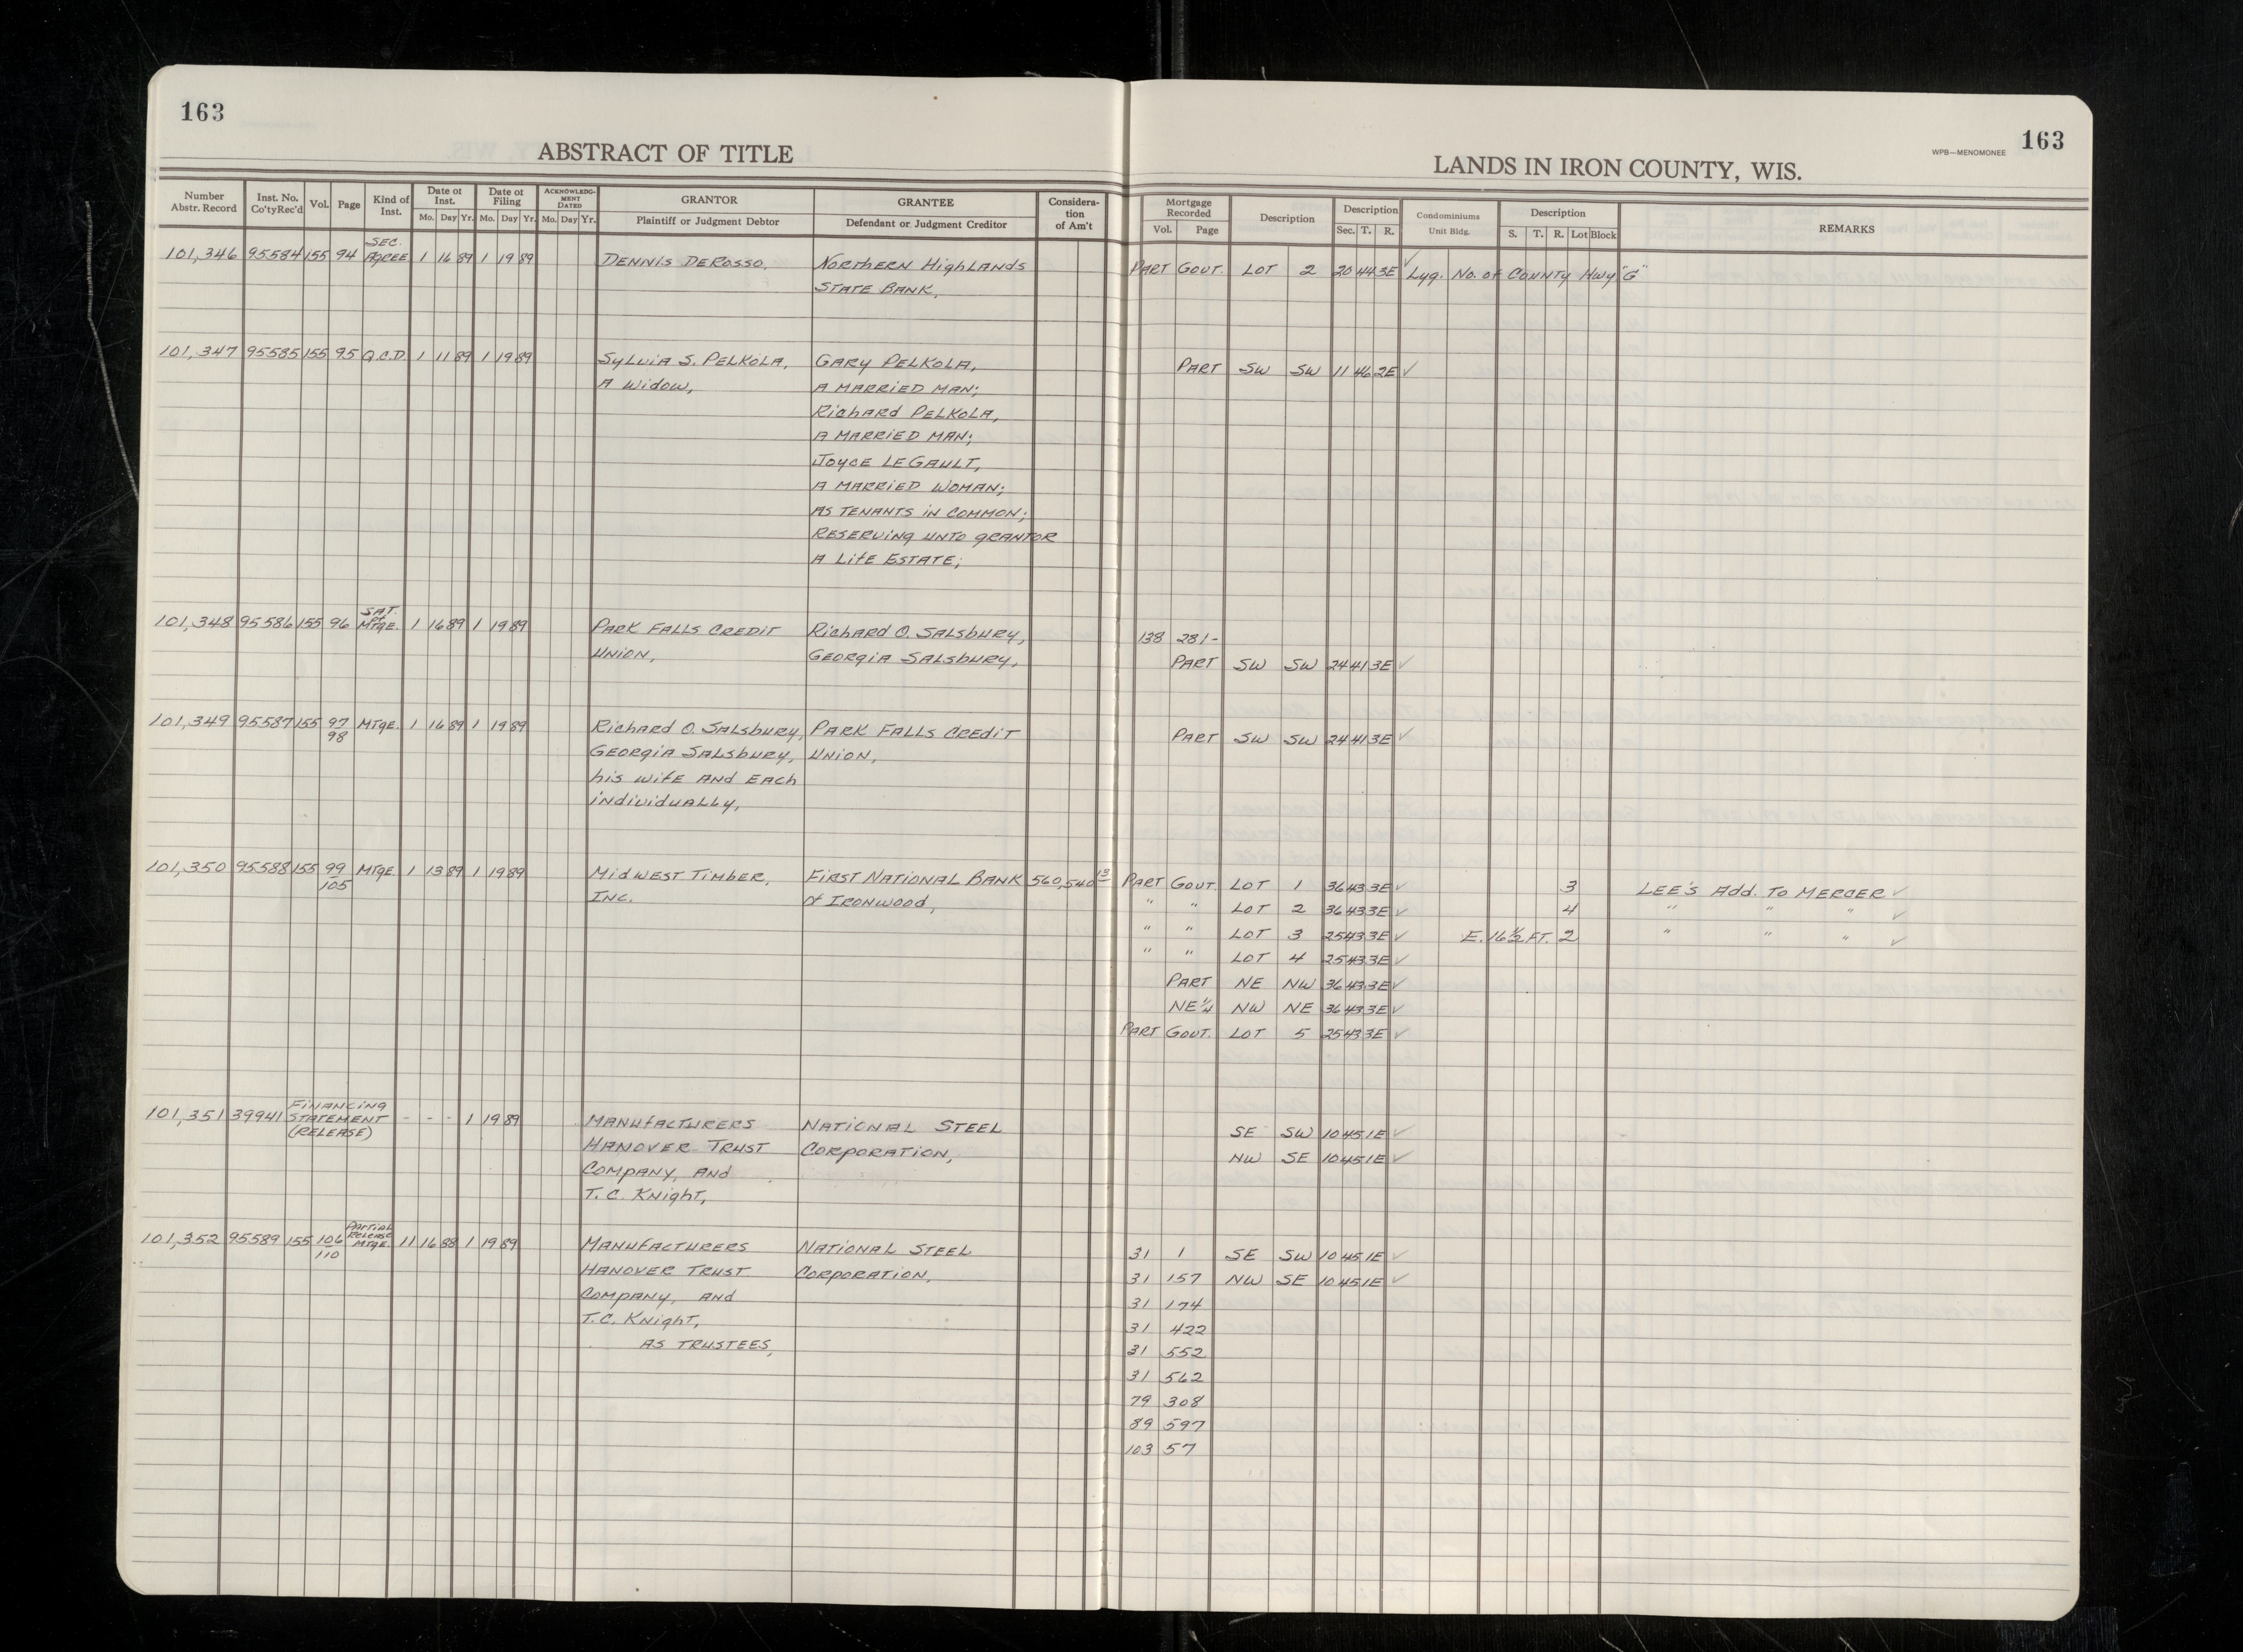 163
ABSTRACT OF TITLE
Number Abstr. Record | Inst. No. Co'ty Rec'd | Vol. | Page | Kind of Inst. | Date of Inst. Mo. Day Yr. | Date of Filing Mo. Day Yr. | ACKNOWLEDGMENT DATED Mo. Day Yr. | GRANTOR Plaintiff or Judgment Debtor | GRANTEE Defendant or Judgment Creditor | Consideration of Am't
101,346 95584 155 94 SEC. AGREE 1 16 89 1 19 89 DENNIS DEROSSO, NORTHERN HIGHLANDS
STATE BANK,
101,347 95585 155 95 Q.C.D. 1 11 89 1 19 89 SYLVIA S. PELKOLA, GARY PELKOLA,
A WIDOW, A MARRIED MAN;
RICHARD PELKOLA,
A MARRIED MAN;
JOYCE LEGAULT,
A MARRIED WOMAN;
AS TENANTS IN COMMON;
RESERVING UNTO GRANTOR
A LIFE ESTATE;
101,348 95586 155 96 SAT. of MTGE. 1 16 89 1 19 89 PARK FALLS CREDIT RICHARD O. SALSBURY,
UNION, GEORGIA SALSBURY,
101,349 95587 155 97 98 MTGE. 1 16 89 1 19 89 RICHARD O. SALSBURY, PARK FALLS CREDIT
GEORGIA SALSBURY, UNION,
HIS WIFE AND EACH
INDIVIDUALLY,
101,350 95588 155 99 105 MTGE. 1 13 89 1 19 89 MIDWEST TIMBER, FIRST NATIONAL BANK 560,540 13
INC. OF IRONWOOD,
101,351 39941 FINANCING STATEMENT (RELEASE) - - - 1 19 89 MANUFACTURERS NATIONAL STEEL
HANOVER TRUST CORPORATION,
COMPANY, AND
T. C. KNIGHT,
101,352 95589 155 106 110 PARTIAL RELEASE MTGE. 11 16 88 1 19 89 MANUFACTURERS NATIONAL STEEL
HANOVER TRUST CORPORATION,
COMPANY, AND
T. C. KNIGHT,
AS TRUSTEES,
WPB—MENOMONEE 163
LANDS IN IRON COUNTY, WIS.
Mortgage Recorded Vol. Page | Description | Description Sec. T. R. | Condominiums Unit Bldg. | Description S. T. R. Lot Block | REMARKS
PART GOVT. LOT 2 20 44 3E ✓ Lyg. No. of COUNTY Hwy "G"
PART SW SW 11 46 2E ✓
138 281-
PART SW SW 24 41 3E ✓
PART SW SW 24 41 3E ✓
PART GOVT. LOT 1 36 43 3E ✓ 3 LEE'S Add. To MERCER ✓
" " LOT 2 36 43 3E ✓ 4 " " " ✓
" " LOT 3 25 43 3E ✓ E. 16 1/2 FT. 2 " " " ✓
" " LOT 4 25 43 3E ✓
PART NE NW 36 43 3E ✓
NE 1/4 NW NE 36 43 3E ✓
PART GOVT. LOT 5 25 43 3E ✓
SE SW 10 45 1E ✓
NW SE 10 45 1E ✓
31 1 SE SW 10 45 1E ✓
31 157 NW SE 10 45 1E ✓
31 174
31 422
31 552
31 562
79 308
89 597
103 57